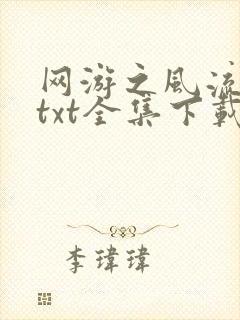 网游之风流
txt全集下载
李瑋瑋